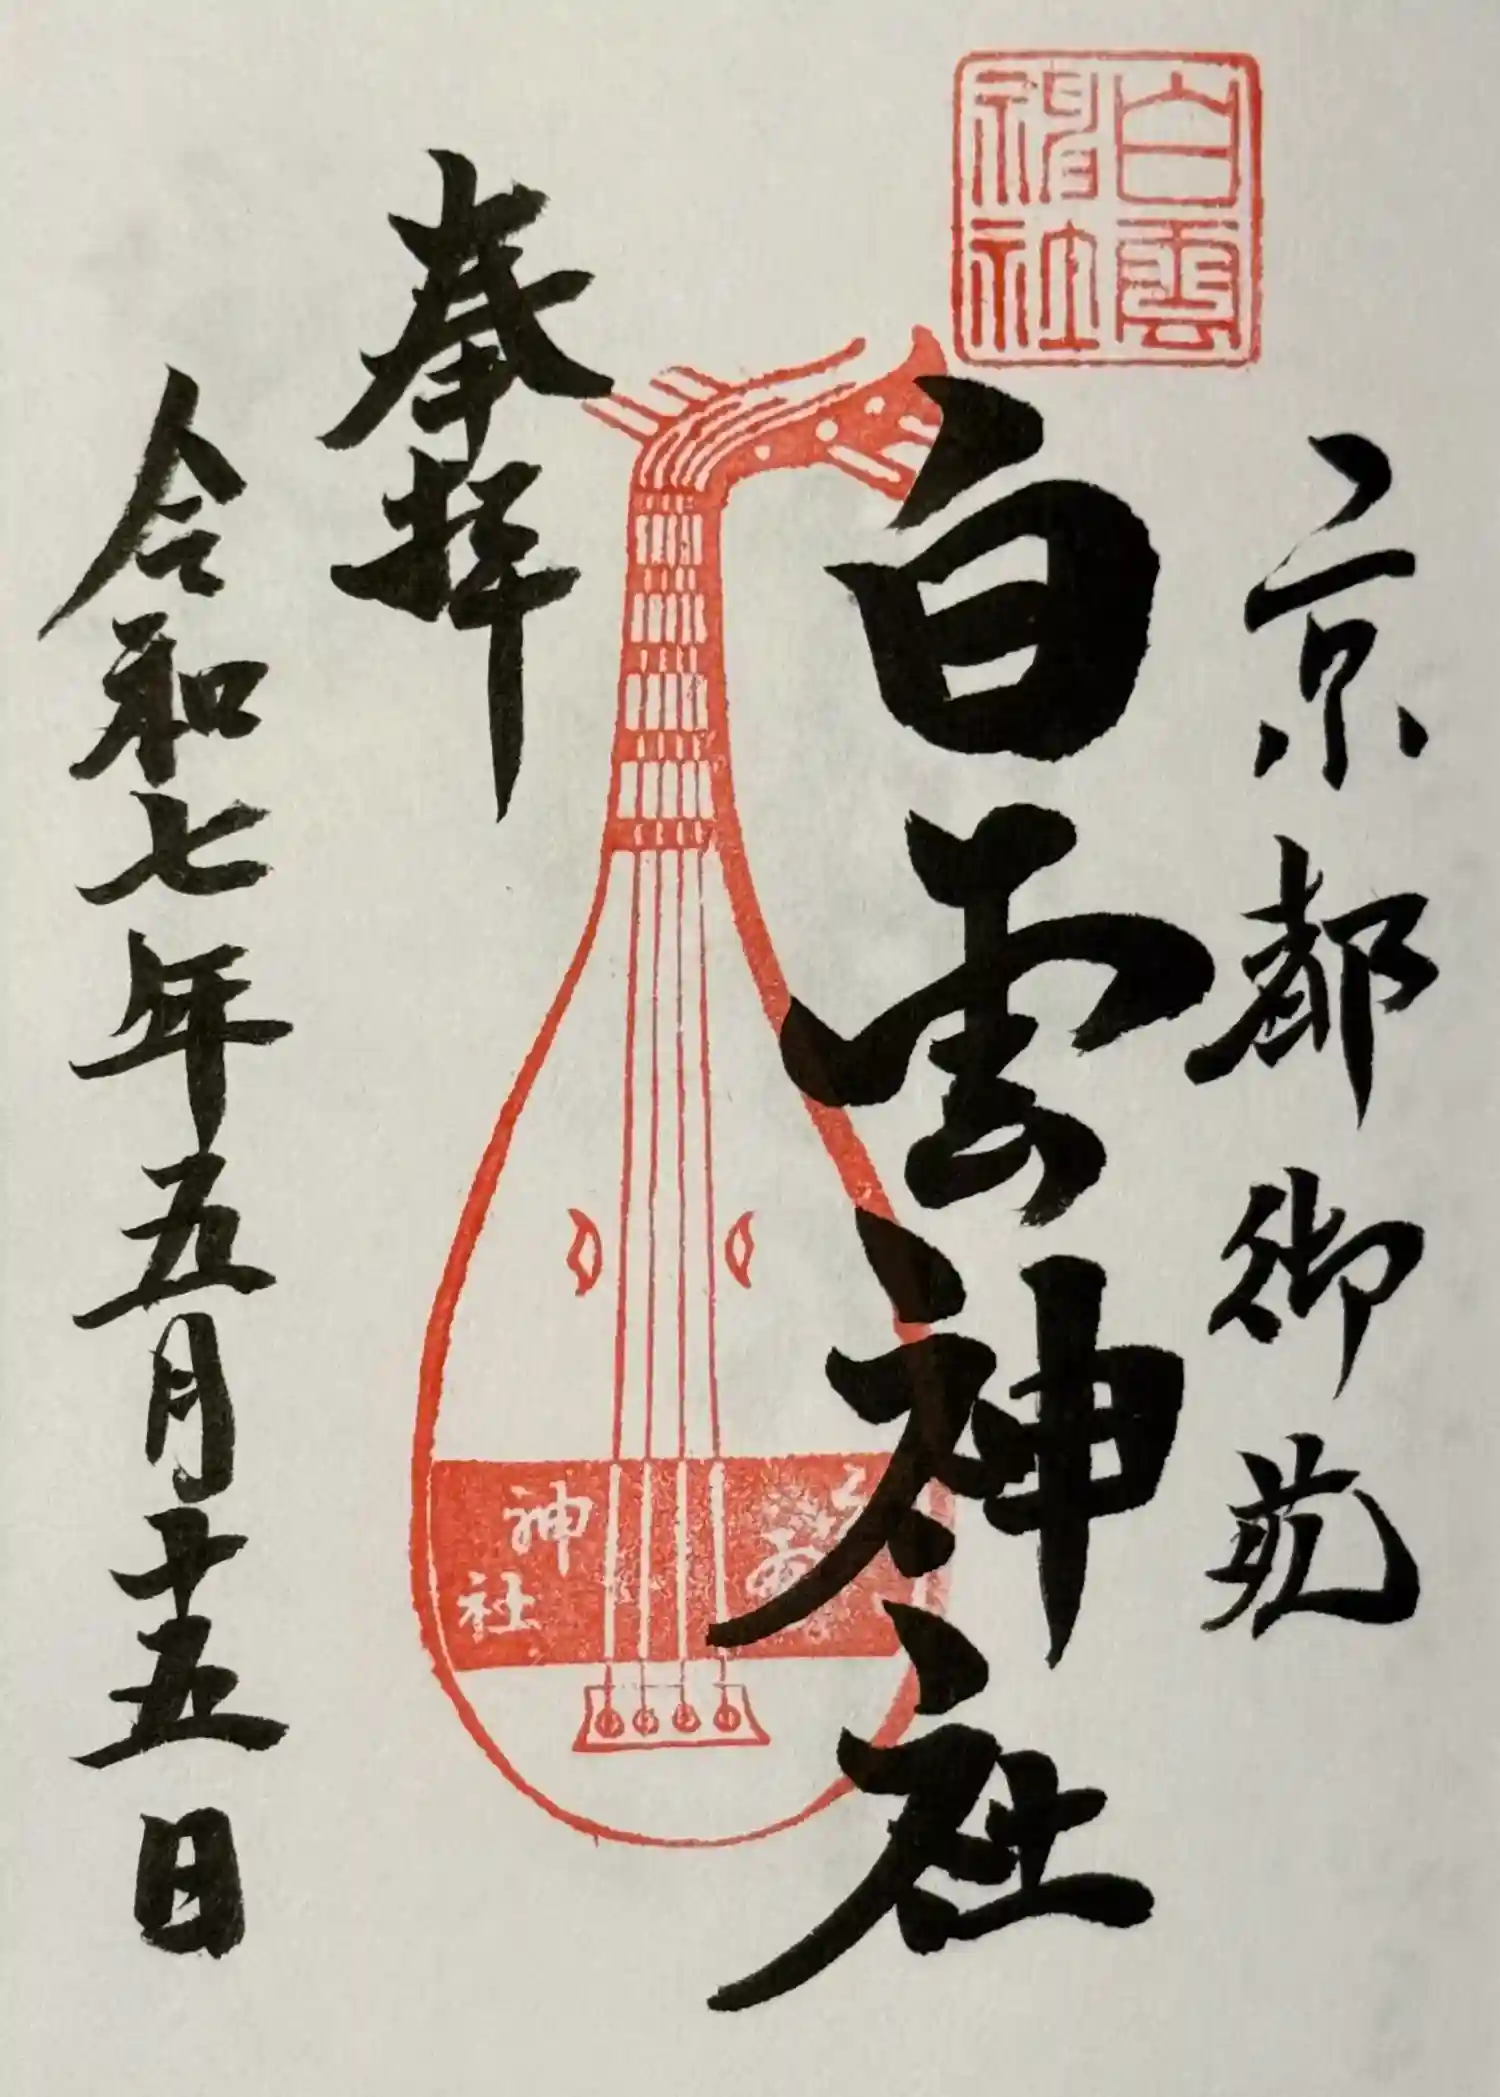 白雲
神社
京都御苑
白雲神社
神社
奉拝
令和七年五月十五日